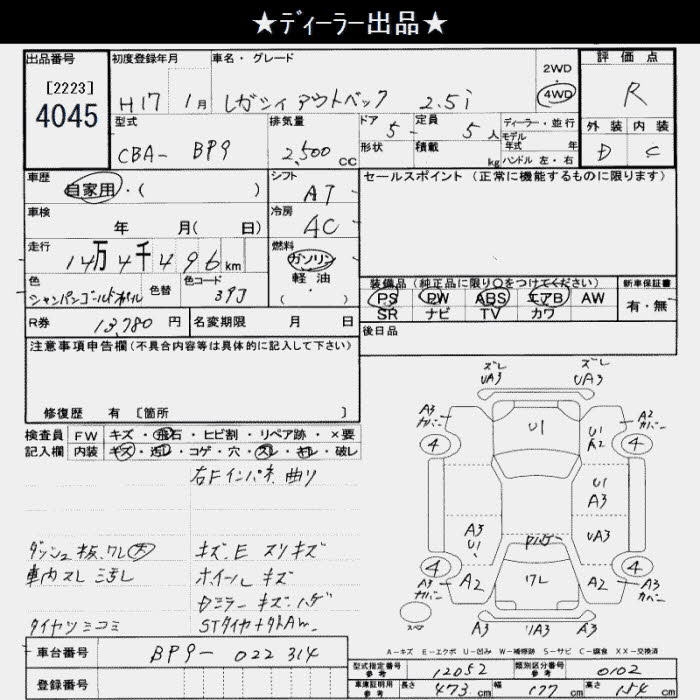 ★ディーラー出品★
出品番号 初度登録年月 車名・グレード 2WD 評価点
[2223]
4045 H17 1月 レガシィ アウトバック 2.5i 4WD R
型式 排気量 ドア 定員 ディーラー・並行 外装 内装
CBA- BP9 2,500 CC 5 5人 モデル年式 年 D C
形状 積載 kg ハンドル 左・右
車歴 シフト セールスポイント(正常に機能するものに限ります)
自家用・( ) AT
車検 冷房
年 月( 日) AC
走行 燃料
14万4千496km ガソリン
色 色替 色コード 軽油 装備品(純正品に限り○をつけてください) 新車保証書
39J ・( ) PS PW ABS エアB AW 有・無
SR ナビ TV カワ
R券 13,780円 名変期限 月 日 後日品
注意事項申告欄(不具合内容等は具体的に記入して下さい)
修復歴 有 [箇所 ]
検査員 FW キズ・飛石・ヒビ割・リペア跡・×要
記入欄 内装 キズ・汚れ・コゲ・穴・スレ・キレ・破レ
右Fインパネ曲り
ズレ ズレ
UA3 UA3
A3 カバー U1 U1 A2 A2 カバー
4 4
U1 A3
A3 U1 UA3
4 ワレ 4
A3 カバー A2 A2 A3 カバー
スペア A3 A3
キズ、E スリキズ
車内スレ ホイールキズ
タイヤツミコミ
A-キズ E-エクボ U-凹み W-補修跡 S-サビ C-腐食 XX-交換済
車台番号 BP9-022314
登録番号
型式指定番号 参考 12052 類別区分番号 参考 0102
車庫証明用 参考 長さ 473cm 幅 177cm 高さ 154cm